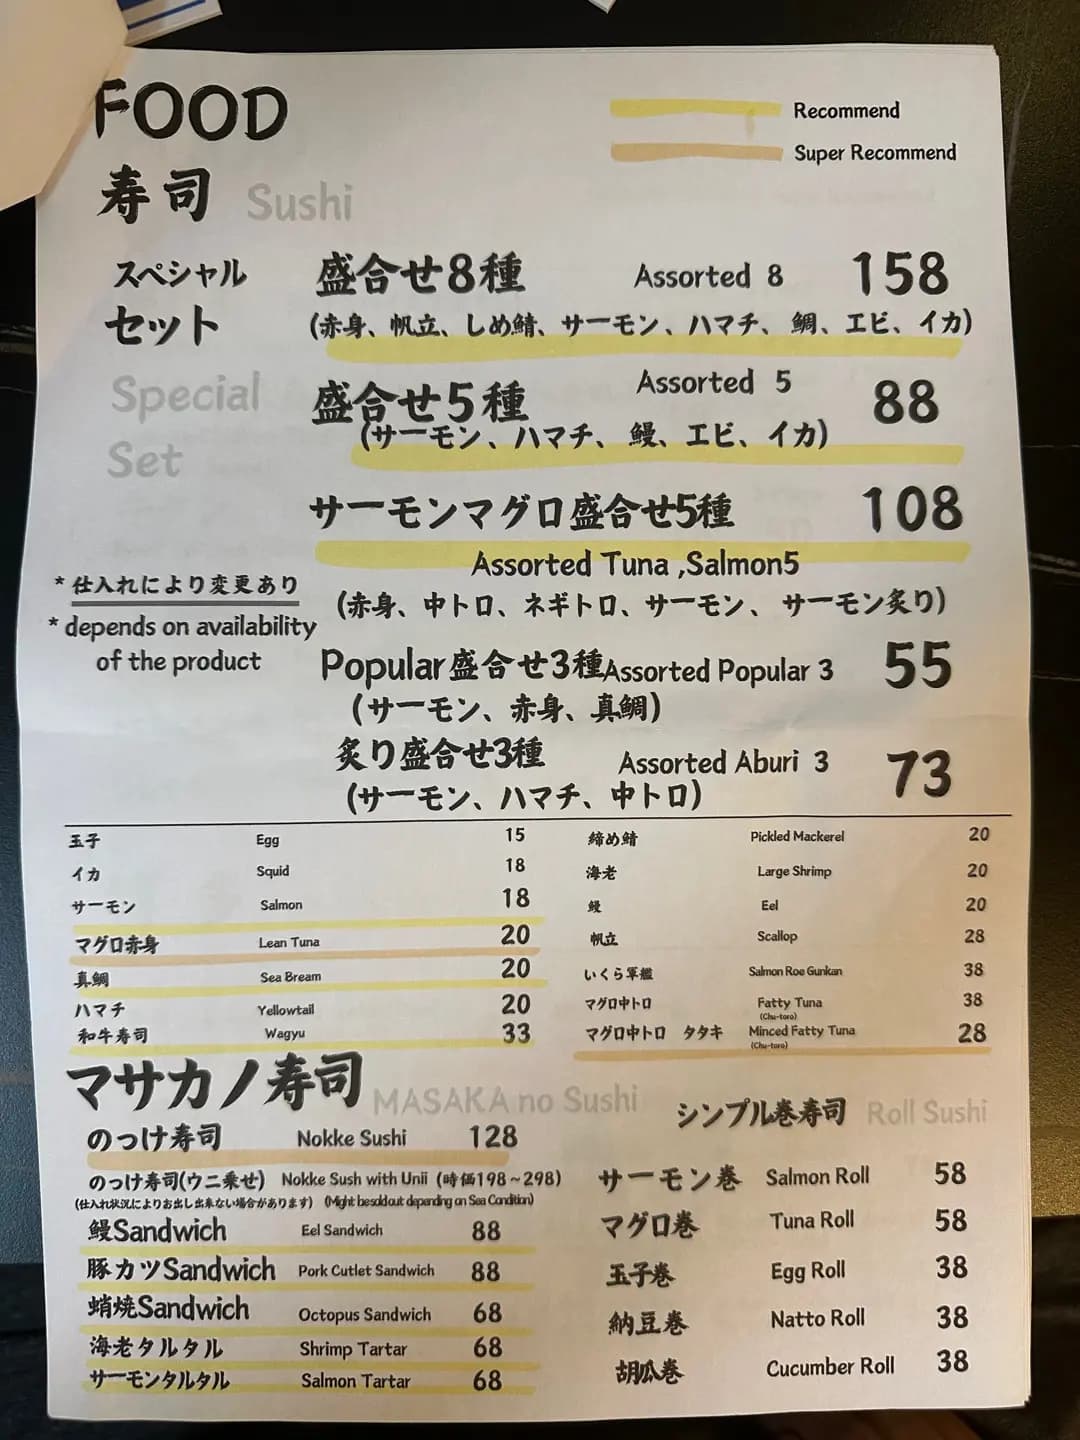 FOOD
Recommend
Super Recommend
寿司 Sushi
スペシャル
セット
Special
Set
盛合せ8種 Assorted 8 158
(赤身、帆立、しめ鯖、サーモン、ハマチ、鯛、エビ、イカ)
盛合せ5種 Assorted 5 88
(サーモン、ハマチ、鰻、エビ、イカ)
サーモンマグロ盛合せ5種 108
Assorted Tuna ,Salmon5
(赤身、中トロ、ネギトロ、サーモン、サーモン炙り)
* 仕入れにより変更あり
* depends on availability
of the product
Popular盛合せ3種 Assorted Popular 3 55
(サーモン、赤身、真鯛)
炙り盛合せ3種 Assorted Aburi 3 73
(サーモン、ハマチ、中トロ)
玉子 Egg 15
イカ Squid 18
サーモン Salmon 18
マグロ赤身 Lean Tuna 20
真鯛 Sea Bream 20
ハマチ Yellowtail 20
和牛寿司 Wagyu 33
締め鯖 Pickled Mackerel 20
海老 Large Shrimp 20
鰻 Eel 20
帆立 Scallop 28
いくら軍艦 Salmon Roe Gunkan 38
マグロ中トロ Fatty Tuna 38
(Chu-toro)
マグロ中トロ タタキ Minced Fatty Tuna 28
(Chu-toro)
マサカノ寿司 MASAKA no Sushi
のっけ寿司 Nokke Sushi 128
のっけ寿司(ウニ乗せ) Nokke Sush with Unii (時価198~298)
(仕入れ状況によりお出し出来ない場合があります) (Might be sold out depending on Sea Condition)
鰻Sandwich Eel Sandwich 88
豚カツSandwich Pork Cutlet Sandwich 88
蛸焼Sandwich Octopus Sandwich 68
海老タルタル Shrimp Tartar 68
サーモンタルタル Salmon Tartar 68
シンプル巻寿司 Roll Sushi
サーモン巻 Salmon Roll 58
マグロ巻 Tuna Roll 58
玉子巻 Egg Roll 38
納豆巻 Natto Roll 38
胡瓜巻 Cucumber Roll 38